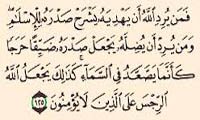 فَمَن يُرِدِ ٱللَّهُ أَن يَهْدِيَهُۥ يَشْرَحْ صَدْرَهُۥ لِلْإِسْلَٰمِ ۖ
وَمَن يُرِدْ أَن يُضِلَّهُۥ يَجْعَلْ صَدْرَهُۥ ضَيِّقًا حَرَجًا
كَأَنَّمَا يَصَّعَّدُ فِى ٱلسَّمَآءِ ۚ كَذَٰلِكَ يَجْعَلُ ٱللَّهُ
ٱلرِّجْسَ عَلَى ٱلَّذِينَ لَا يُؤْمِنُونَ ١٢٥